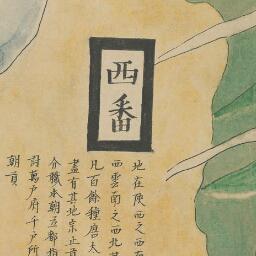 西番
地在陝西之西南
西雲南之西北其
凡百餘種唐太
盡有其地宋止
分職本朝立都指
討萬户府千户所
朝貢